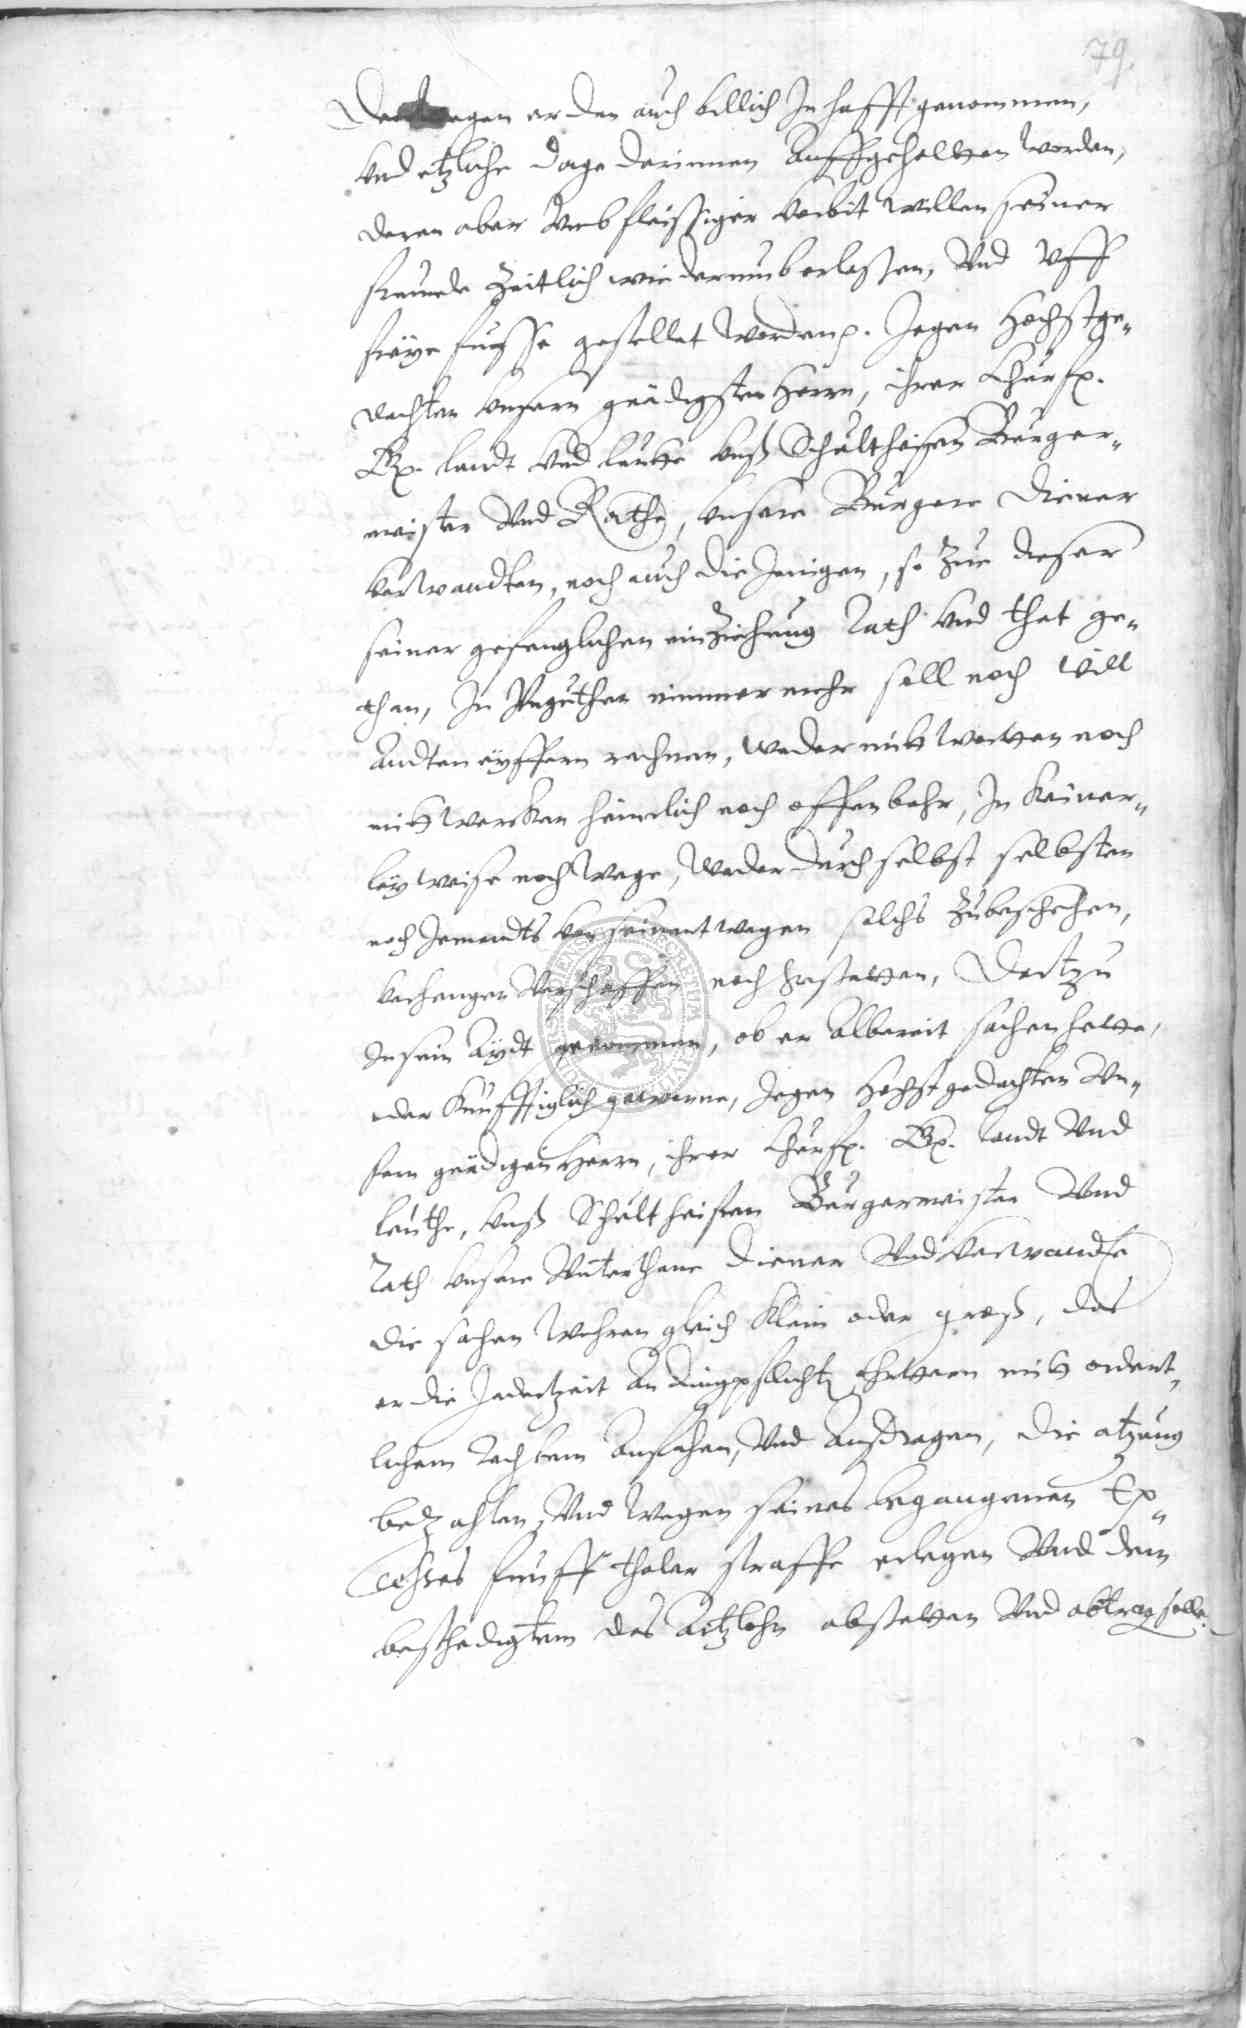 79.
Derwegen er den auch billich In hafft genommen,
vnd etzliche dage darinnen auffgehalten worden,
daran aber vmb fleissiger vorbit willen seiner
freunde zeitlich wiederumb erlassen, vnd vff
freye fuesse gestellet worden. Jegen Hochstge„
dachten vnsern gnädigsten Herrn, ihrer Churf.
G. landt vnd leuthe vnß Schultheissen Burger„
meister vnd Rathe, vnsere Burgere diener
verwandten, noch auch die Jenigen, so zue dieser
seiner gefenglichen einziehung Rath vnd that ge„
than, In vnguthen nimmermehr soll noch will
eyffern rechnen, weder mitt wortten noch
mitt wercken heimlich noch offenbahr, In keiner„
ley weise noch wege, weder durch selbst selbsten
noch Jemandts von seinentwegen solchs zubeschehen,
verhengen verschaffen noch gestatten, Dartzu
In sein Aydt genommen, ob er albereit sachen hette,
oder künfftiglich gewunne, Jegen Hochstgedachten vn„
sern gnädigen Herrn, ihrer Churf. G. landt vnd
leuthe, vnß Schultheissen Burgermeister vnd
Rath vnsere vnterthane diener vnd verwandte
die sachen wehren gleich klein oder groß, das
er die Jedertzeit an dingpflichtigen mitt ordent„
lichem Rechten ansuchen, vnd außtragen, die atzung
betzahlen, vnd wegen seines begangenen Ex„
cesses funff thaler straffe erlegen vnd dem
beschedigtem das artzlohn abstatten vnd abtrag solle.